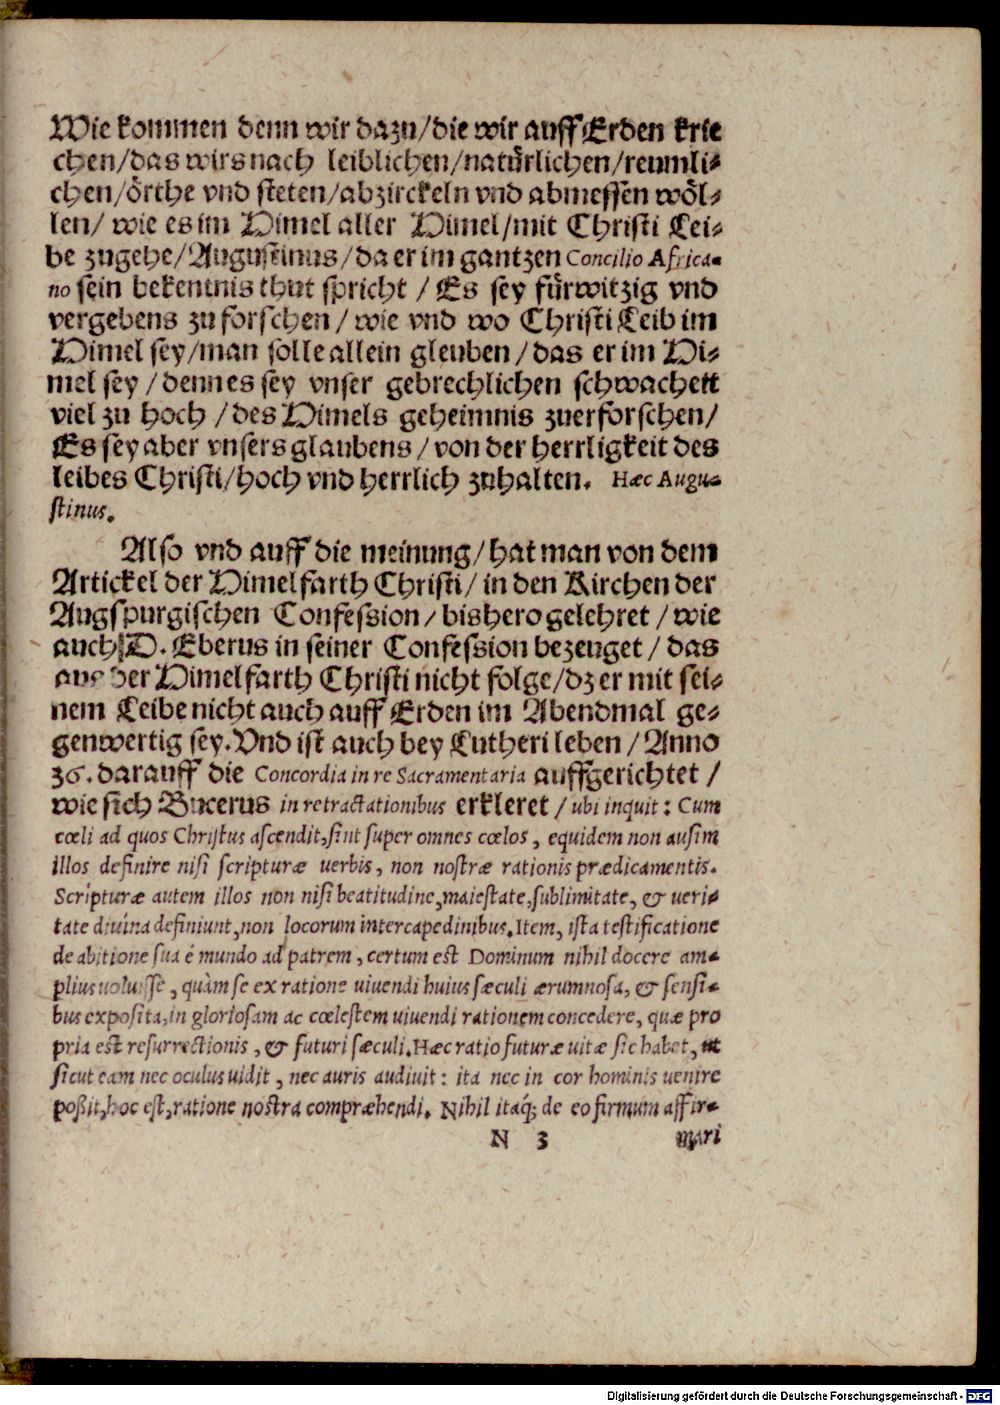 Wie kommen denn wir dazu/die wir auff Erden krie
chen/das wirs nach leiblichen/natürlichen/reumli-
chen/örthe vnd steten/abzirckeln vnd abmessen wöl-
len/ wie es im Himel aller Himel/mit Christi Lei-
be zugehe/Augustinus/da er im gantzen Concilio Africa-
no sein bekentnis thut spricht / Es sey fürwitzig vnd
vergebens zu forschen / wie vnd wo Christi Leib im
Himel sey/man solle allein gleuben / das er im Hi-
mel sey / denn es sey vnser gebrechlichen schwacheit
viel zu hoch / des Himels geheimnis zuerforschen/
Es sey aber vnsers glaubens / von der herrligkeit des
leibes Christi/hoch vnd herrlich zuhalten. Hæc Augu-
stinus.
Also vnd auff die meinung/hat man von dem
Artickel der Himelfarth Christi/ in den Kirchen der
Augspurgischen Confession / bishero gelehret / wie
auch D. Eberus in seiner Confession bezeuget / das
aus der Himelfarth Christi nicht folge/dz er mit sei-
nem Leibe nicht auch auff Erden im Abendmal ge-
genwertig sey. Vnd ist auch bey Lutheri leben / Anno
36. darauff die Concordia in re Sacramentaria auffgerichtet /
wie sich Bucerus in retractationibus erkleret / ubi inquit: Cum
cœli ad quos Christus ascendit, sint super omnes cœlos, equidem non ausim
illos definire nisi scripturæ verbis, non nostræ rationis prædicamentis.
Scripturæ autem illos non nisi beatitudine, maiestate, sublimitate, & ueri-
tate diuina definiunt, non locorum intercapedinibus. Item, ista testificatione
de abitione sua é mundo ad patrem, certum est Dominum nihil docere am-
plius uoluisse, quàm se ex ratione uiuendi huius sæculi ærumnosa, & sensi-
bus exposita, in gloriosam ac cœlestem uiuendi rationem concedere, quæ pro
pria est resurrectionis, & futuri sæculi. Hæc ratio futuræ uitæ sic habet, ut
sicut eam nec oculus uidit, nec auris audiuit: ita nec in cor hominis uenire
poßit, hoc est, ratione nostra compræhendi. Nihil itaq; de eo firmum affir-
N 3 mari
Digitalisierung gefördert durch die Deutsche Forschungsgemeinschaft - DFG